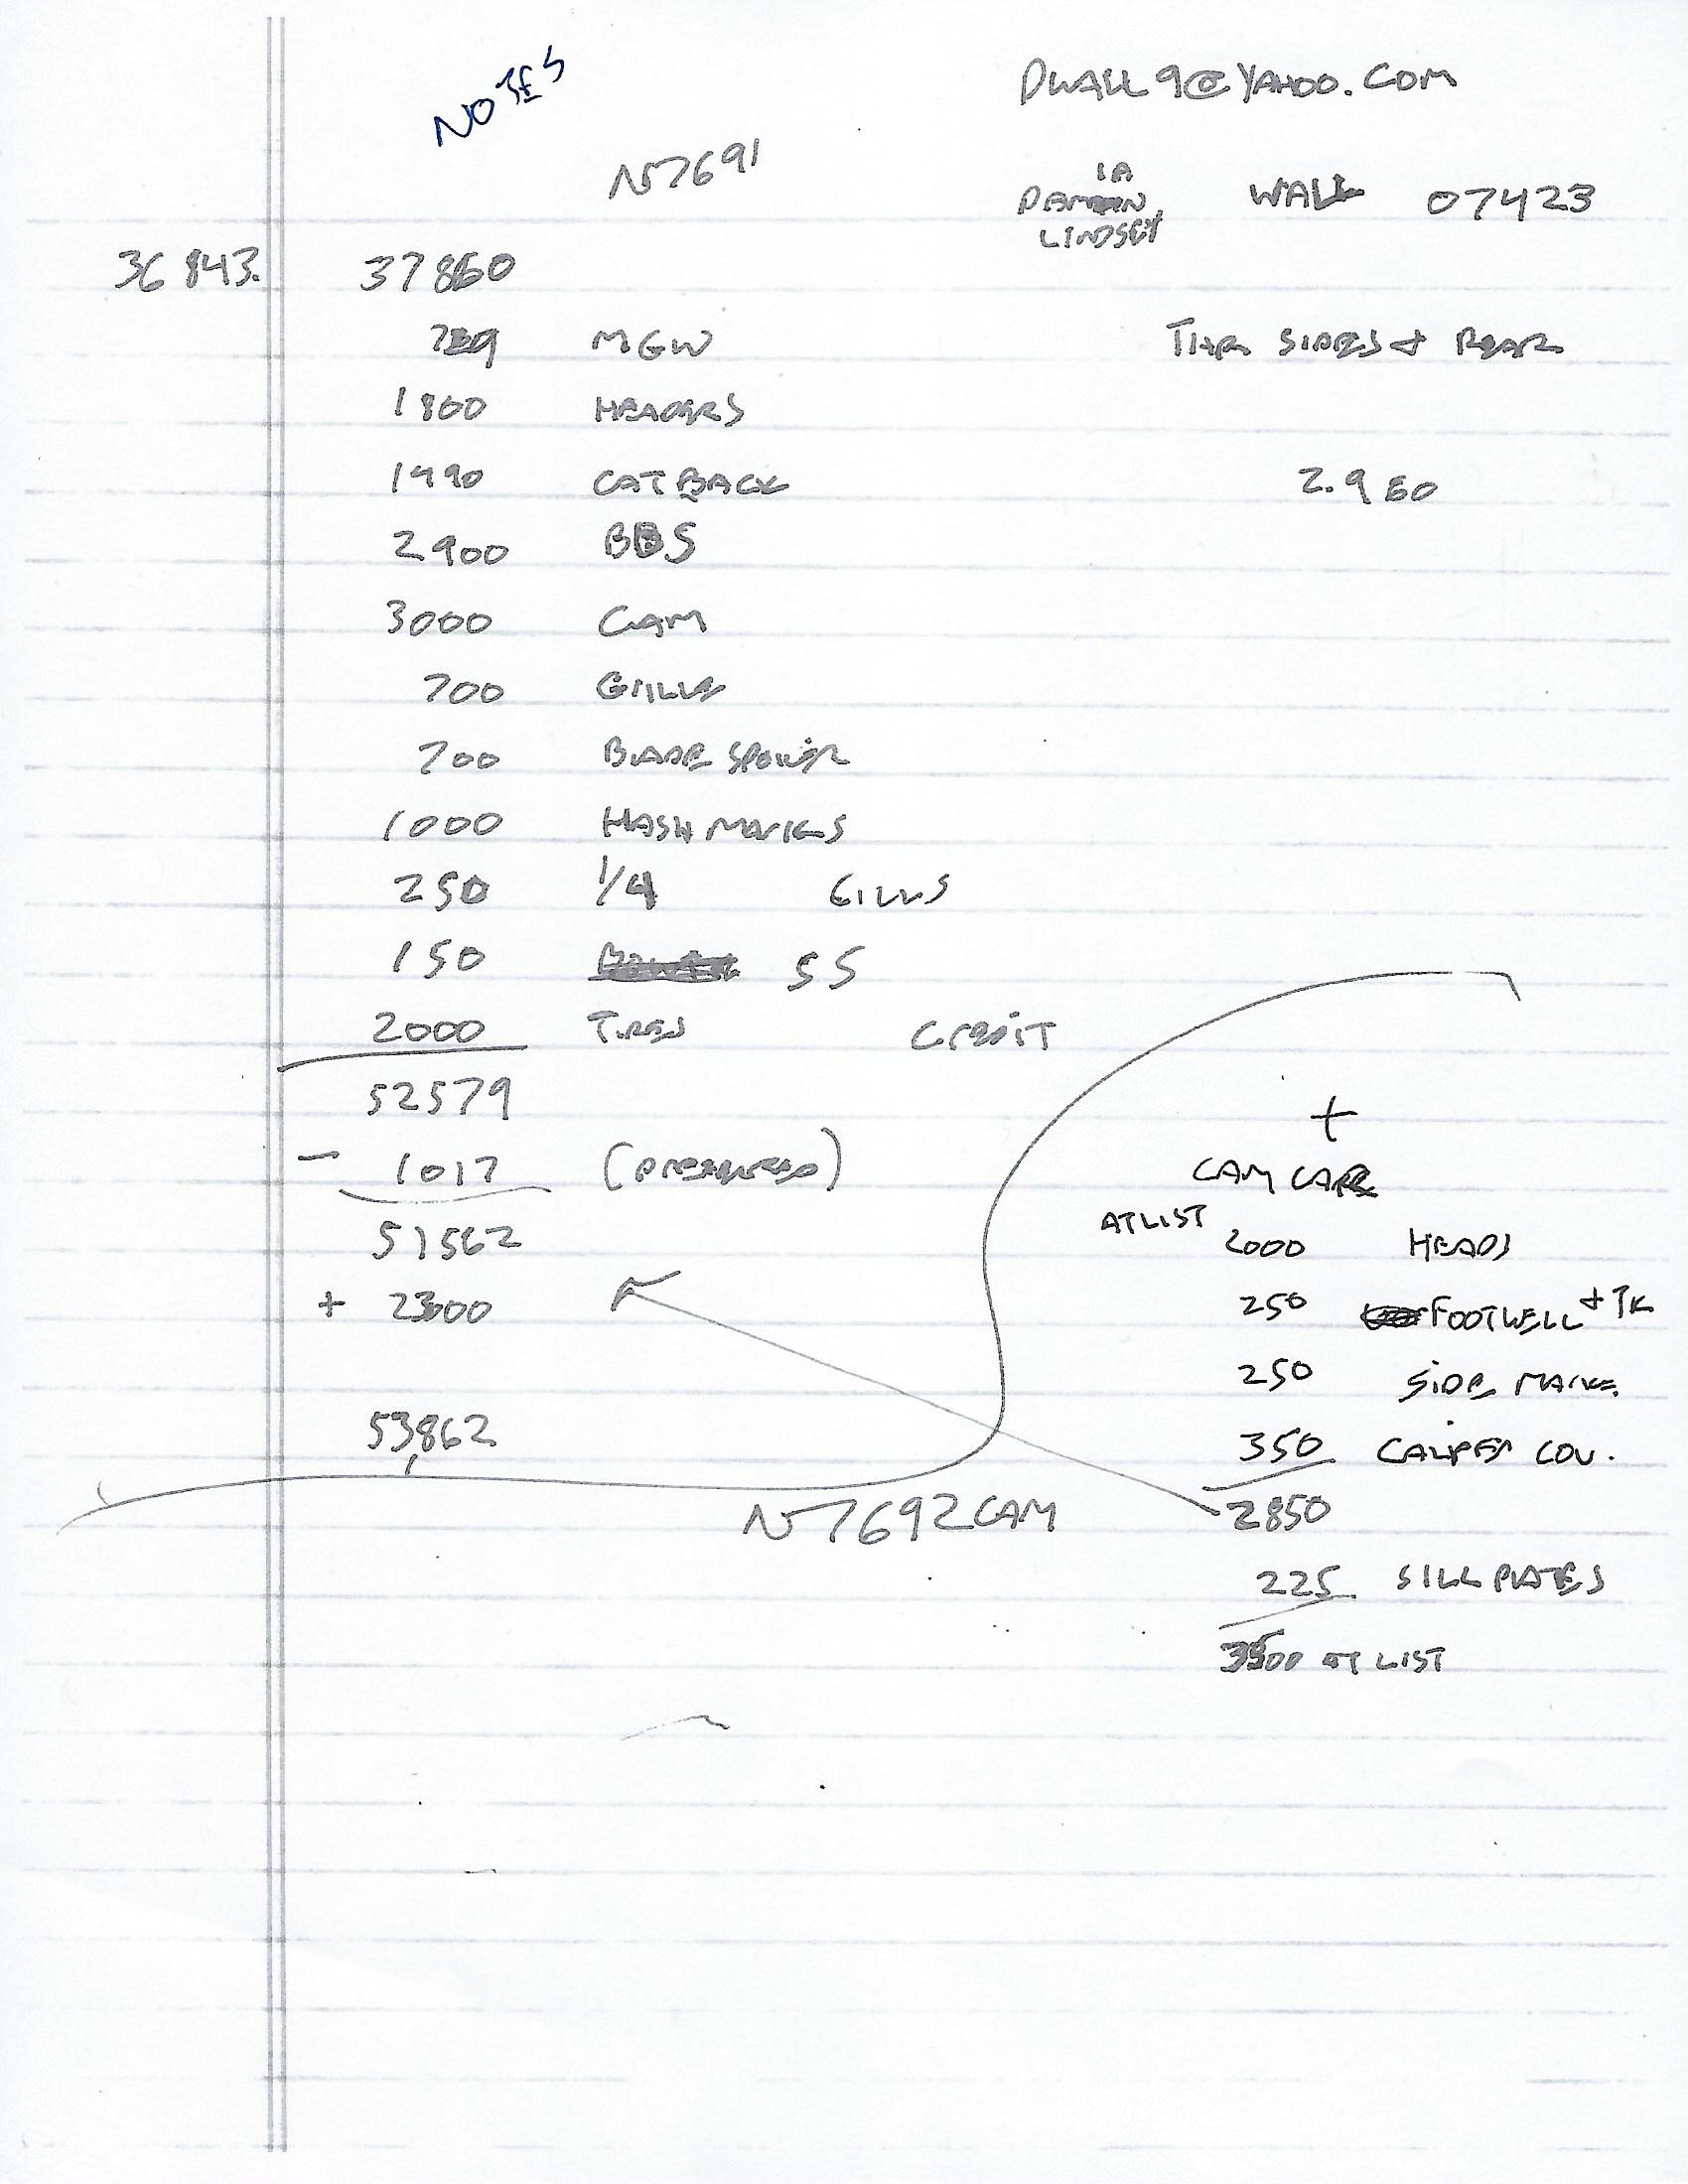 NOTES
DWALL9@YAHOO.COM
N7691
IA
DAMIAN WALL 07423
LINDSEY
36 843. 37860
789 MGW
SIDES + REAR
1800 HEADERS
1490 CATBACK 2.960
2900 BBS
3000 CAM
700 GRILLE
700 BLADE SPOILER
1000 HASH MARKS
250 1/4 GILLS
150 SS
2000 TIRES CREDIT
52579
- 1017
51562
+ 2300
53,862
+
CAM CAR
AT LIST
2000 HEADS
250 FOOTWELL + TK
250 SIDE MARK.
350 CALIPER COV.
N7692CAM 2850
225 SILL PLATES
AT LIST